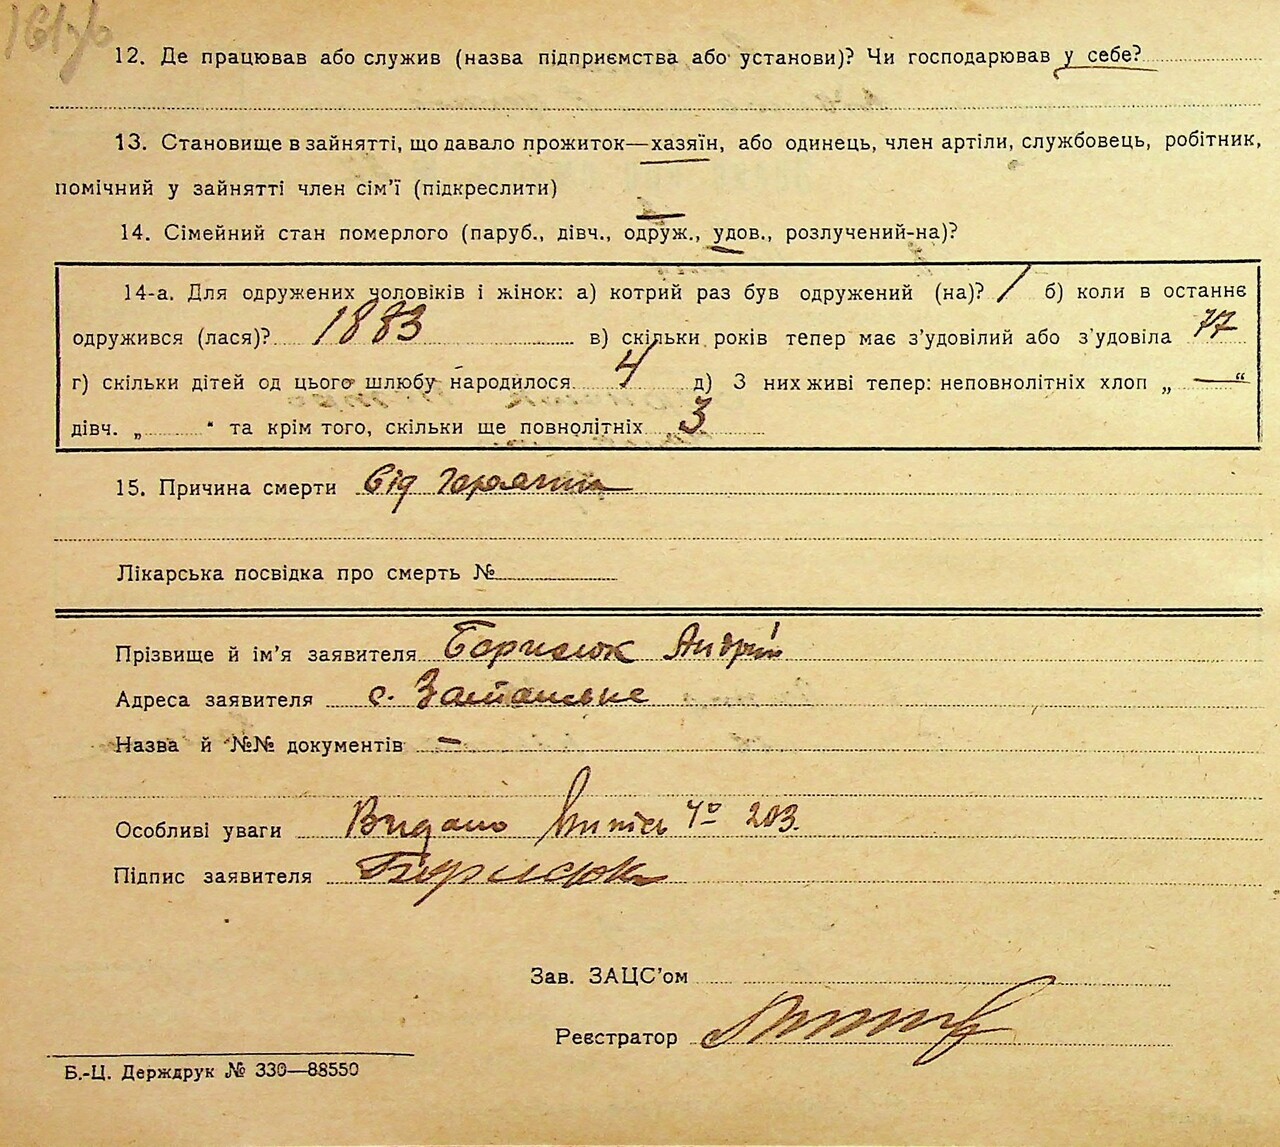 12. Де працював або служив (назва підприємства або установи)? Чи господарював у себе?
13. Становище в зайнятті, що давало прожиток—хазяїн, або одинець, член артіли, службовець, робітник,
помічний у зайнятті член сім'ї (підкреслити)
14. Сімейний стан померлого (паруб., дівч., одруж., удов., розлучений-на)?
14-а. Для одружених чоловіків і жінок: а) котрий раз був одружений (на)? 1 б) коли в останнє
одружився (лася)? 1883 в) скільки років тепер має з'удовілий або з'удовіла 77
г) скільки дітей од цього шлюбу народилося 4 д) З них живі тепер: неповнолітніх хлоп „ — “
дівч. „ “ та крім того, скільки ще повнолітніх 3
15. Причина смерти Від
Лікарська посвідка про смерть №
Прізвище й ім'я заявителя Борисюк Андрій
Адреса заявителя с.
Назва й №№ документів —
Особливі уваги Видано 203.
Підпис заявителя Борисюк
Зав. ЗАЦС'ом
Реєстратор
Б.-Ц. Держдрук № 330—88550